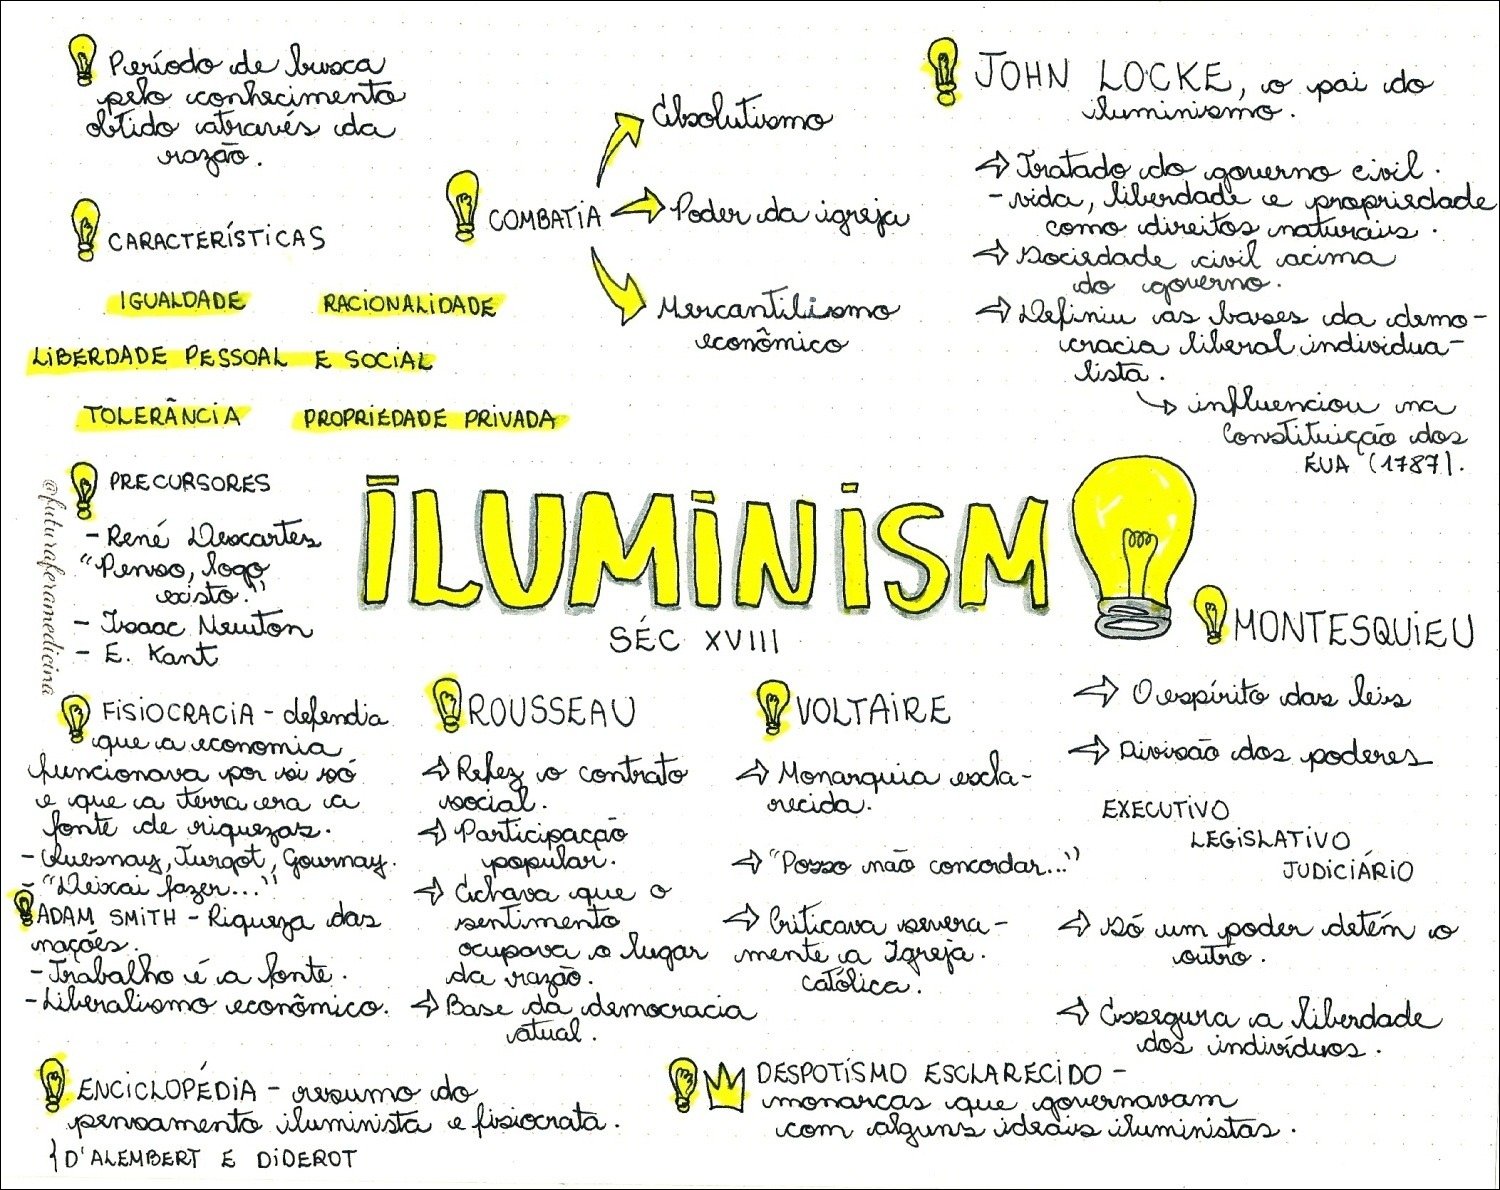 Período de busca
pelo conhecimento
obtido através da
razão.
CARACTERÍSTICAS
IGUALDADE RACIONALIDADE
LIBERDADE PESSOAL E SOCIAL
TOLERÂNCIA PROPRIEDADE PRIVADA
COMBATIA
Absolutismo
Poder da igreja
Mercantilismo
econômico
JOHN LOCKE, o pai do
iluminismo.
→ Tratado do governo civil.
- vida, liberdade e propriedade
como direitos naturais.
→ Sociedade civil acima
do governo.
→ Definiu as bases da demo-
cracia liberal individua-
lista.
→ influenciou na
Constituição dos
EUA (1787).
PRECURSORES
- René Descartes
"Penso, logo
existo."
- Isaac Newton
- E. Kant
@futuraferamedicina
ILUMINISM
SÉC XVIII
FISIOCRACIA - defendia
que a economia
funcionava por si só
e que a terra era a
fonte de riquezas.
- Quesnay, Turgot, Gournay.
- "Deixai fazer..."
ADAM SMITH - Riqueza das
nações.
- Trabalho é a fonte.
- Liberalismo econômico.
ROUSSEAU
→ Refez o contrato
social.
→ Participação
popular.
→ Achava que o
sentimento
ocupava o lugar
da razão.
→ Base da democracia
atual.
VOLTAIRE
→ Monarquia escla-
recida.
→ "Posso não concordar..."
→ Criticava severa-
mente a Igreja
católica.
MONTESQUIEU
→ O espírito das leis
→ Divisão dos poderes
EXECUTIVO
LEGISLATIVO
JUDICIÁRIO
→ Só um poder detém o
outro.
→ Assegura a liberdade
dos indivíduos.
ENCICLOPÉDIA - resumo do
pensamento iluminista e fisiocrata.
{ D'ALEMBERT E DIDEROT
DESPOTISMO ESCLARECIDO -
monarcas que governavam
com alguns ideais iluministas.